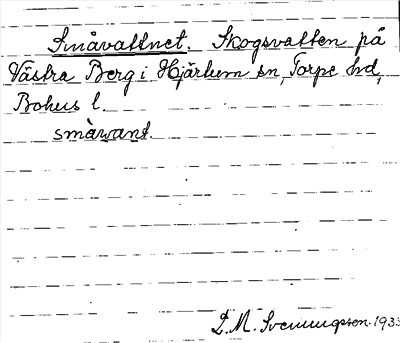 Småvattnet. Skogsvatten på
Västra Berg i Hjärtum sn, Torpe hd,
Bohus l.
småvant.
D.M. Svenningsson. 193